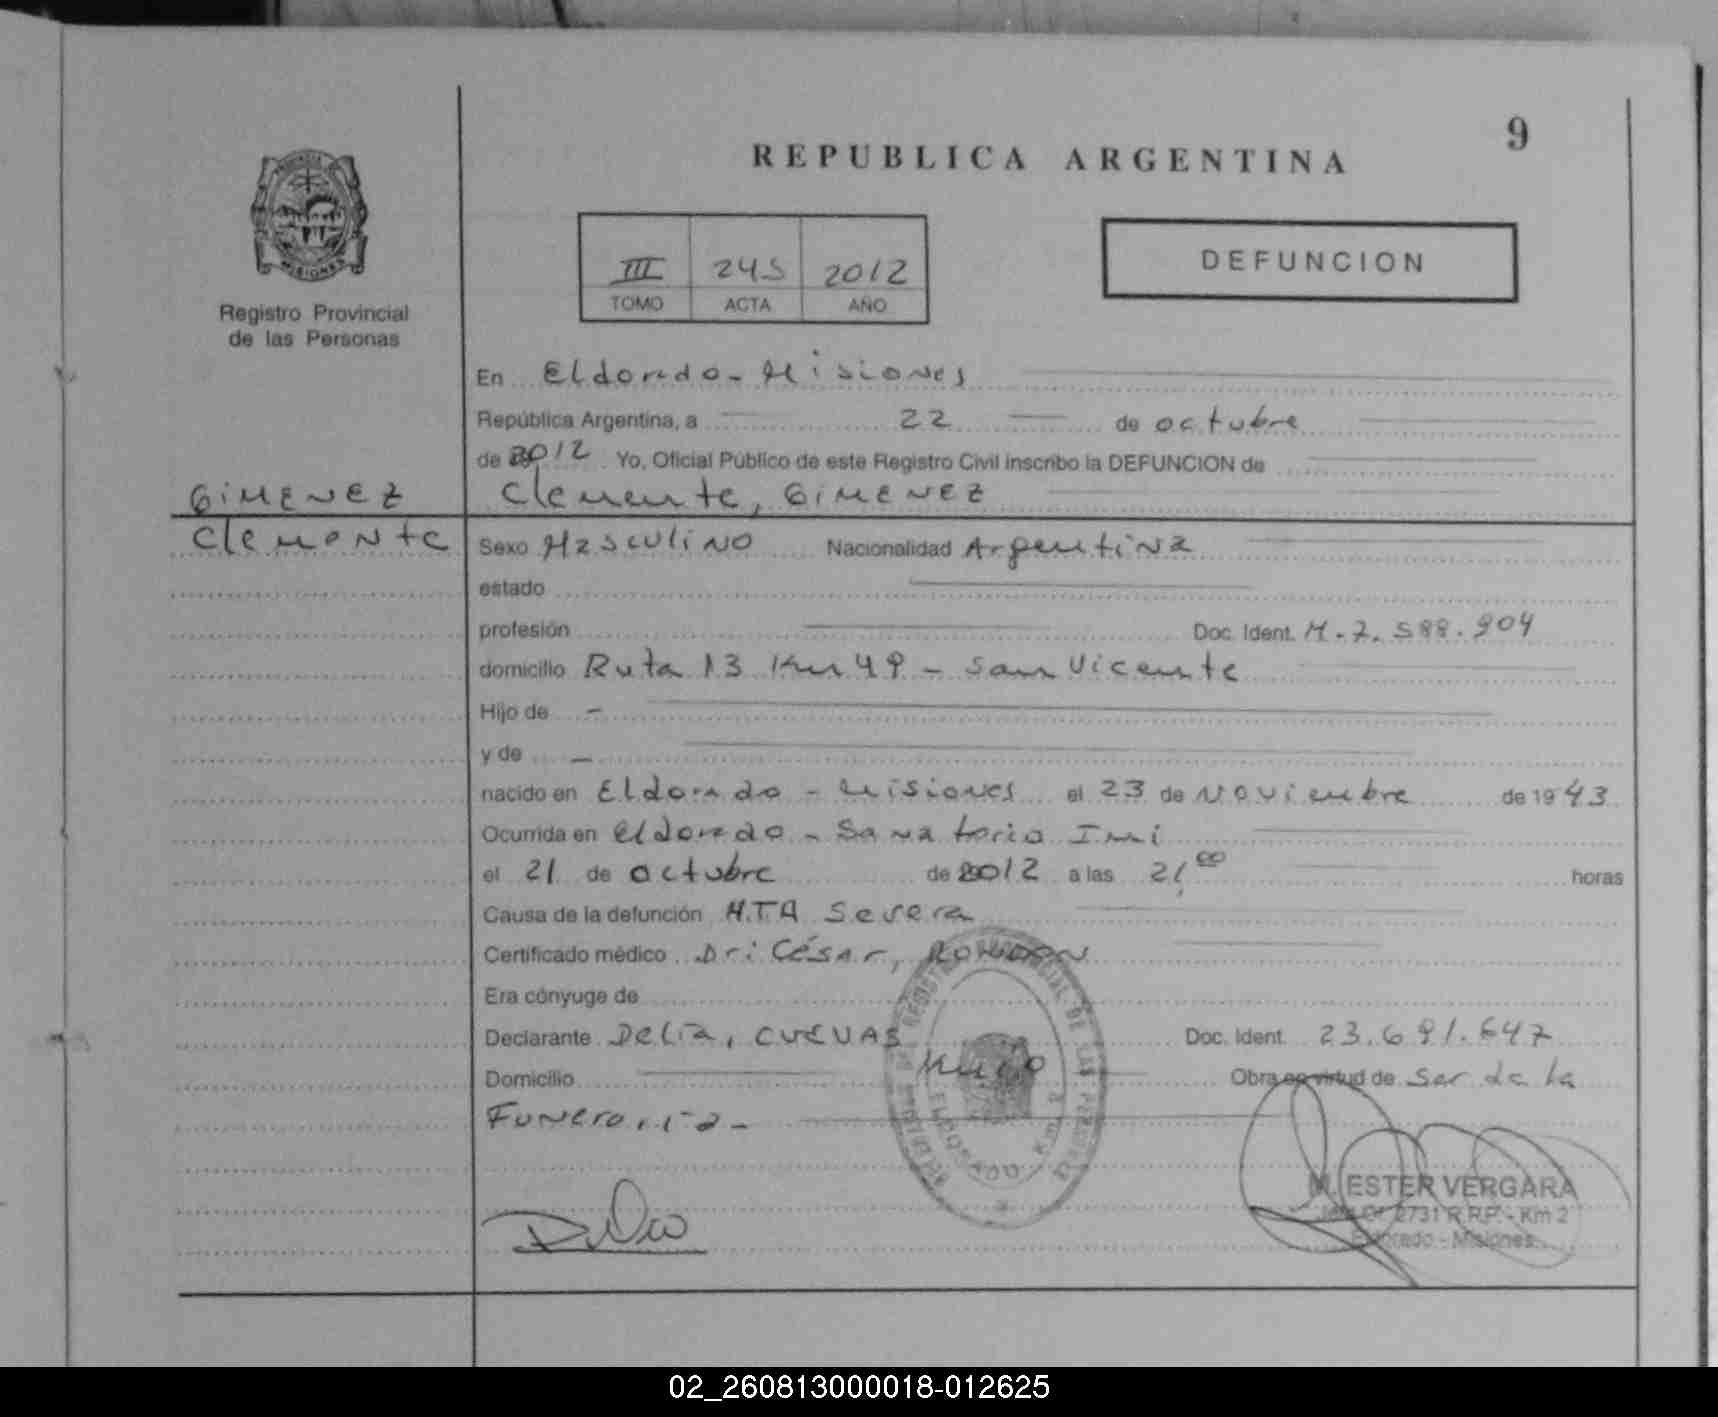 9
REPUBLICA ARGENTINA
III 245 2012
TOMO ACTA AÑO
DEFUNCION
MISIONES
Registro Provincial
de las Personas
En Eldorado - Misiones
República Argentina, a 22 de octubre
de 2012 Yo, Oficial Público de este Registro Civil inscribo la DEFUNCION de
GIMENEZ Clemente, GIMENEZ
Clemente Sexo Masculino Nacionalidad Argentina
estado
profesión Doc. Ident. M.7.588.904
domicilio Ruta 13 Km 49 - San Vicente
Hijo de -
y de -
nacido en Eldorado - Misiones el 23 de Noviembre de 1943
Ocurrida en Eldorado - Sanatorio
el 21 de octubre de 2012 a las 21,00 horas
Causa de la defunción H.T.A Severa
Certificado médico Dr: César,
Era cónyuge de
Declarante Delia, CUEVAS Doc. Ident. 23.691.647
Domicilio Obra en virtud de Ser de la
Funeraria -
ELDORADO Km. 2
M. ESTER VERGARA
2731 R.R.P. - Km 2
Eldorado - Misiones
02_260813000018-012625